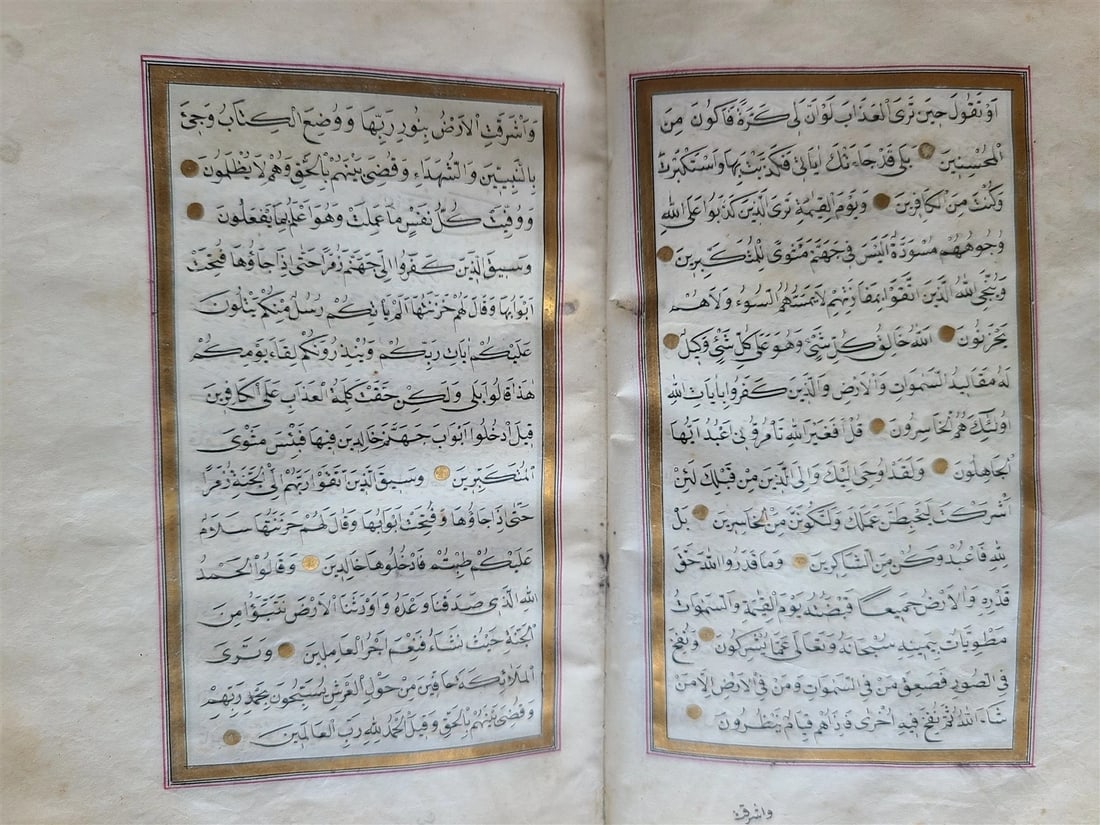 اَوْ تَقُولَ حِينَ تَرَى الْعَذَابَ لَوْ اَنَّ لِى كَرَّةً فَاَكُونَ مِنَ
الْمُحْسِنِينَ بَلٰى قَدْ جَاءَتْكَ اٰيَاتِى فَكَذَّبْتَ بِهَا وَاسْتَكْبَرْتَ
وَكُنْتَ مِنَ الْكَافِرِينَ وَيَوْمَ الْقِيٰمَةِ تَرَى الَّذِينَ كَذَبُوا عَلَى اللّٰهِ
وُجُوهُهُمْ مُسْوَدَّةٌ اَلَيْسَ فِى جَهَنَّمَ مَثْوًى لِلْمُتَكَبِّرِينَ
وَيُنَجِّى اللّٰهُ الَّذِينَ اتَّقَوْا بِمَفَازَتِهِمْ لَا يَمَسُّهُمُ السُّوءُ وَلَا هُمْ
يَحْزَنُونَ اَللّٰهُ خَالِقُ كُلِّ شَىْءٍ وَهُوَ عَلٰى كُلِّ شَىْءٍ وَكِيلٌ
لَهُ مَقَالِيدُ السَّمٰوَاتِ وَالْاَرْضِ وَالَّذِينَ كَفَرُوا بِاٰيَاتِ اللّٰهِ
اُولٰئِكَ هُمُ الْخَاسِرُونَ قُلْ اَفَغَيْرَ اللّٰهِ تَاْمُرُونِّى اَعْبُدُ اَيُّهَا
الْجَاهِلُونَ وَلَقَدْ اُوحِىَ اِلَيْكَ وَاِلَى الَّذِينَ مِنْ قَبْلِكَ لَئِنْ
اَشْرَكْتَ لَيَحْبَطَنَّ عَمَلُكَ وَلَتَكُونَنَّ مِنَ الْخَاسِرِينَ بَلِ
اللّٰهَ فَاعْبُدْ وَكُنْ مِنَ الشَّاكِرِينَ وَمَا قَدَرُوا اللّٰهَ حَقَّ
قَدْرِهِ وَالْاَرْضُ جَمِيعًا قَبْضَتُهُ يَوْمَ الْقِيٰمَةِ وَالسَّمٰوَاتُ
مَطْوِيَّاتٌ بِيَمِينِهِ سُبْحَانَهُ وَتَعَالٰى عَمَّا يُشْرِكُونَ وَنُفِخَ
فِى الصُّورِ فَصَعِقَ مَنْ فِى السَّمٰوَاتِ وَمَنْ فِى الْاَرْضِ اِلَّا مَنْ
شَاءَ اللّٰهُ ثُمَّ نُفِخَ فِيهِ اُخْرٰى فَاِذَا هُمْ قِيَامٌ يَنْظُرُونَ
واشرقت
وَاَشْرَقَتِ الْاَرْضُ بِنُورِ رَبِّهَا وَوُضِعَ الْكِتَابُ وَجِىءَ
بِالنَّبِيِّينَ وَالشُّهَدَاءِ وَقُضِىَ بَيْنَهُمْ بِالْحَقِّ وَهُمْ لَا يُظْلَمُونَ
وَوُفِّيَتْ كُلُّ نَفْسٍ مَا عَمِلَتْ وَهُوَ اَعْلَمُ بِمَا يَفْعَلُونَ
وَسِيقَ الَّذِينَ كَفَرُوا اِلٰى جَهَنَّمَ زُمَرًا حَتّٰى اِذَا جَاؤُهَا فُتِحَتْ
اَبْوَابُهَا وَقَالَ لَهُمْ خَزَنَتُهَا اَلَمْ يَاْتِكُمْ رُسُلٌ مِنْكُمْ يَتْلُونَ
عَلَيْكُمْ اٰيَاتِ رَبِّكُمْ وَيُنْذِرُونَكُمْ لِقَاءَ يَوْمِكُمْ
هٰذَا قَالُوا بَلٰى وَلٰكِنْ حَقَّتْ كَلِمَةُ الْعَذَابِ عَلَى الْكَافِرِينَ
قِيلَ ادْخُلُوا اَبْوَابَ جَهَنَّمَ خَالِدِينَ فِيهَا فَبِئْسَ مَثْوَى
الْمُتَكَبِّرِينَ وَسِيقَ الَّذِينَ اتَّقَوْا رَبَّهُمْ اِلَى الْجَنَّةِ زُمَرًا
حَتّٰى اِذَا جَاؤُهَا وَفُتِحَتْ اَبْوَابُهَا وَقَالَ لَهُمْ خَزَنَتُهَا سَلَامٌ
عَلَيْكُمْ طِبْتُمْ فَادْخُلُوهَا خَالِدِينَ وَقَالُوا الْحَمْدُ
لِلّٰهِ الَّذِى صَدَقَنَا وَعْدَهُ وَاَوْرَثَنَا الْاَرْضَ نَتَبَوَّءُ مِنَ
الْجَنَّةِ حَيْثُ نَشَاءُ فَنِعْمَ اَجْرُ الْعَامِلِينَ وَتَرَى
الْمَلَائِكَةَ حَافِّينَ مِنْ حَوْلِ الْعَرْشِ يُسَبِّحُونَ بِحَمْدِ رَبِّهِمْ
وَقُضِىَ بَيْنَهُمْ بِالْحَقِّ وَقِيلَ الْحَمْدُ لِلّٰهِ رَبِّ الْعَالَمِينَ